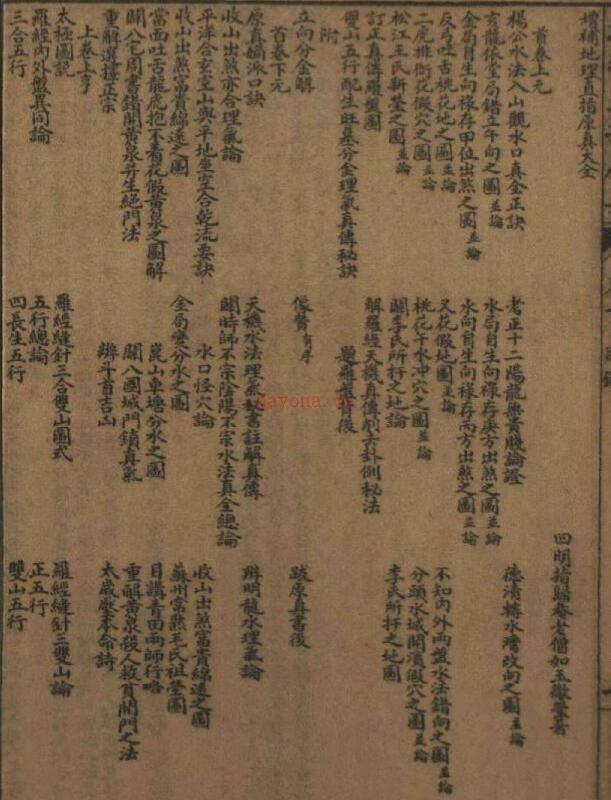 增補地理直指原真大全
四明指歸菴老僧如玉徹瑩著
首卷上元
楊公水法入山觀水口真全正訣
老正十二陽龍與貴賤論證
德清轉水灣改向之圖並論
亥龍依堂局錯立午向之圖並論
水局自生向祿存庚方出煞之圖並論
金局自生向祿存甲位出煞之圖並論
水向自生向祿存丙方出煞之圖並論
不知內外兩盤水法錯向之圖並論
反弓吐舌桃花地之圖並論
又花假地圖並論
分頭水城開瀆假穴之圖並論
二虎排衙花假穴之圖並論
桃花午水冲穴之圖並論
李氏所扦之地圖
松江王氏新塋之圖並論
關李氏所扦之地論
訂正真傳羅盤圖
解羅經天機真傳刪去卦例秘法
雙山五行配生旺墓分金理氣真傳秘訣
附
立向分金解
首卷下元
儉費有序
跋原真書後
原真嫡派口訣
天機水法理氣秘書註解真傳
辨明龍水理氣論
收山出煞亦合理氣論
關時師不宗陰陽不宗水法真全總論
平洋合玄空山與平地坐空合乾流要訣
水口怪穴論
收山出煞富貴綿遠之圖
收山出煞富貴綿遠之圖
全局變分水之圖
蘇州常熟毛氏祖塋圖
當面吐舌龍虎抱不看花假黃泉之圖解
崑山車塘分水之圖
目講青田兩師行略
關八宅周書錯開黃泉并生絕門法
關八國城門鎖真氣
重解黃泉殺人救貧開門之法
重解選擇正宗
辨斗首吉凶
太歲壓本命詩
上卷上亨
太極圖說
羅經縫針三合雙山圖式
羅經縫針三雙山論
羅經內外盤異同論
五行總論
正五行
三合五行
四長生五行
雙山五行
nayona.cn